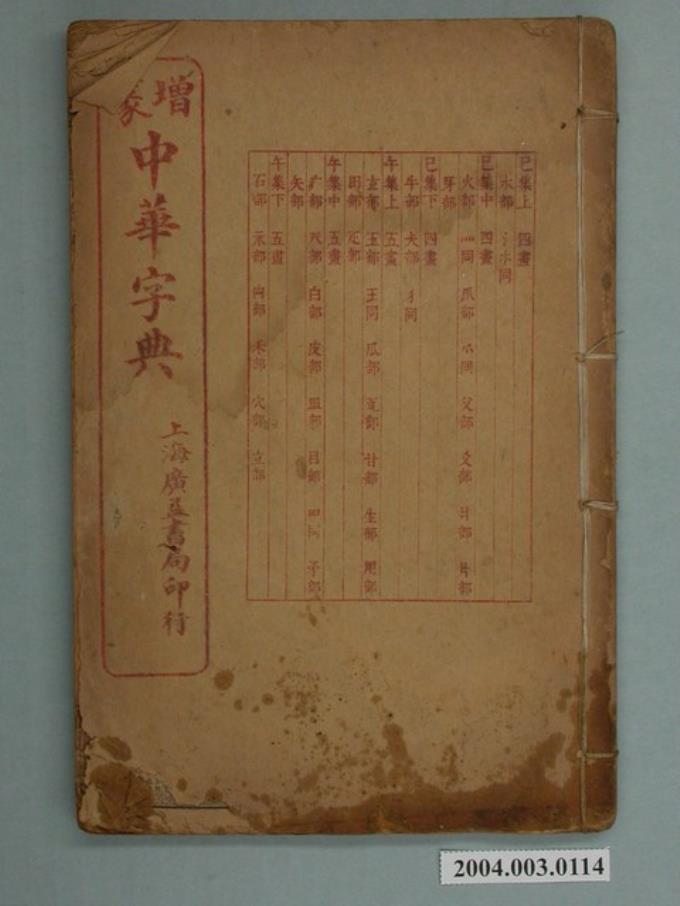 巳集上 四畫
水部 氵氺同
巳集中 四畫
火部 灬同 爪部 爫同 父部 爻部 爿部 片部
牙部
巳集下 四畫
牛部 犬部 犭同
午集上 五畫
玄部 玉部 王同 瓜部 瓦部 甘部 生部 用部
田部 疋部
午集中 五畫
疒部 癶部 白部 皮部 皿部 目部 罒同 矛部
矢部
午集下 五畫
石部 示部 禸部 禾部 穴部 立部
增
中華字典
上海廣益書局印行
2004.003.0114